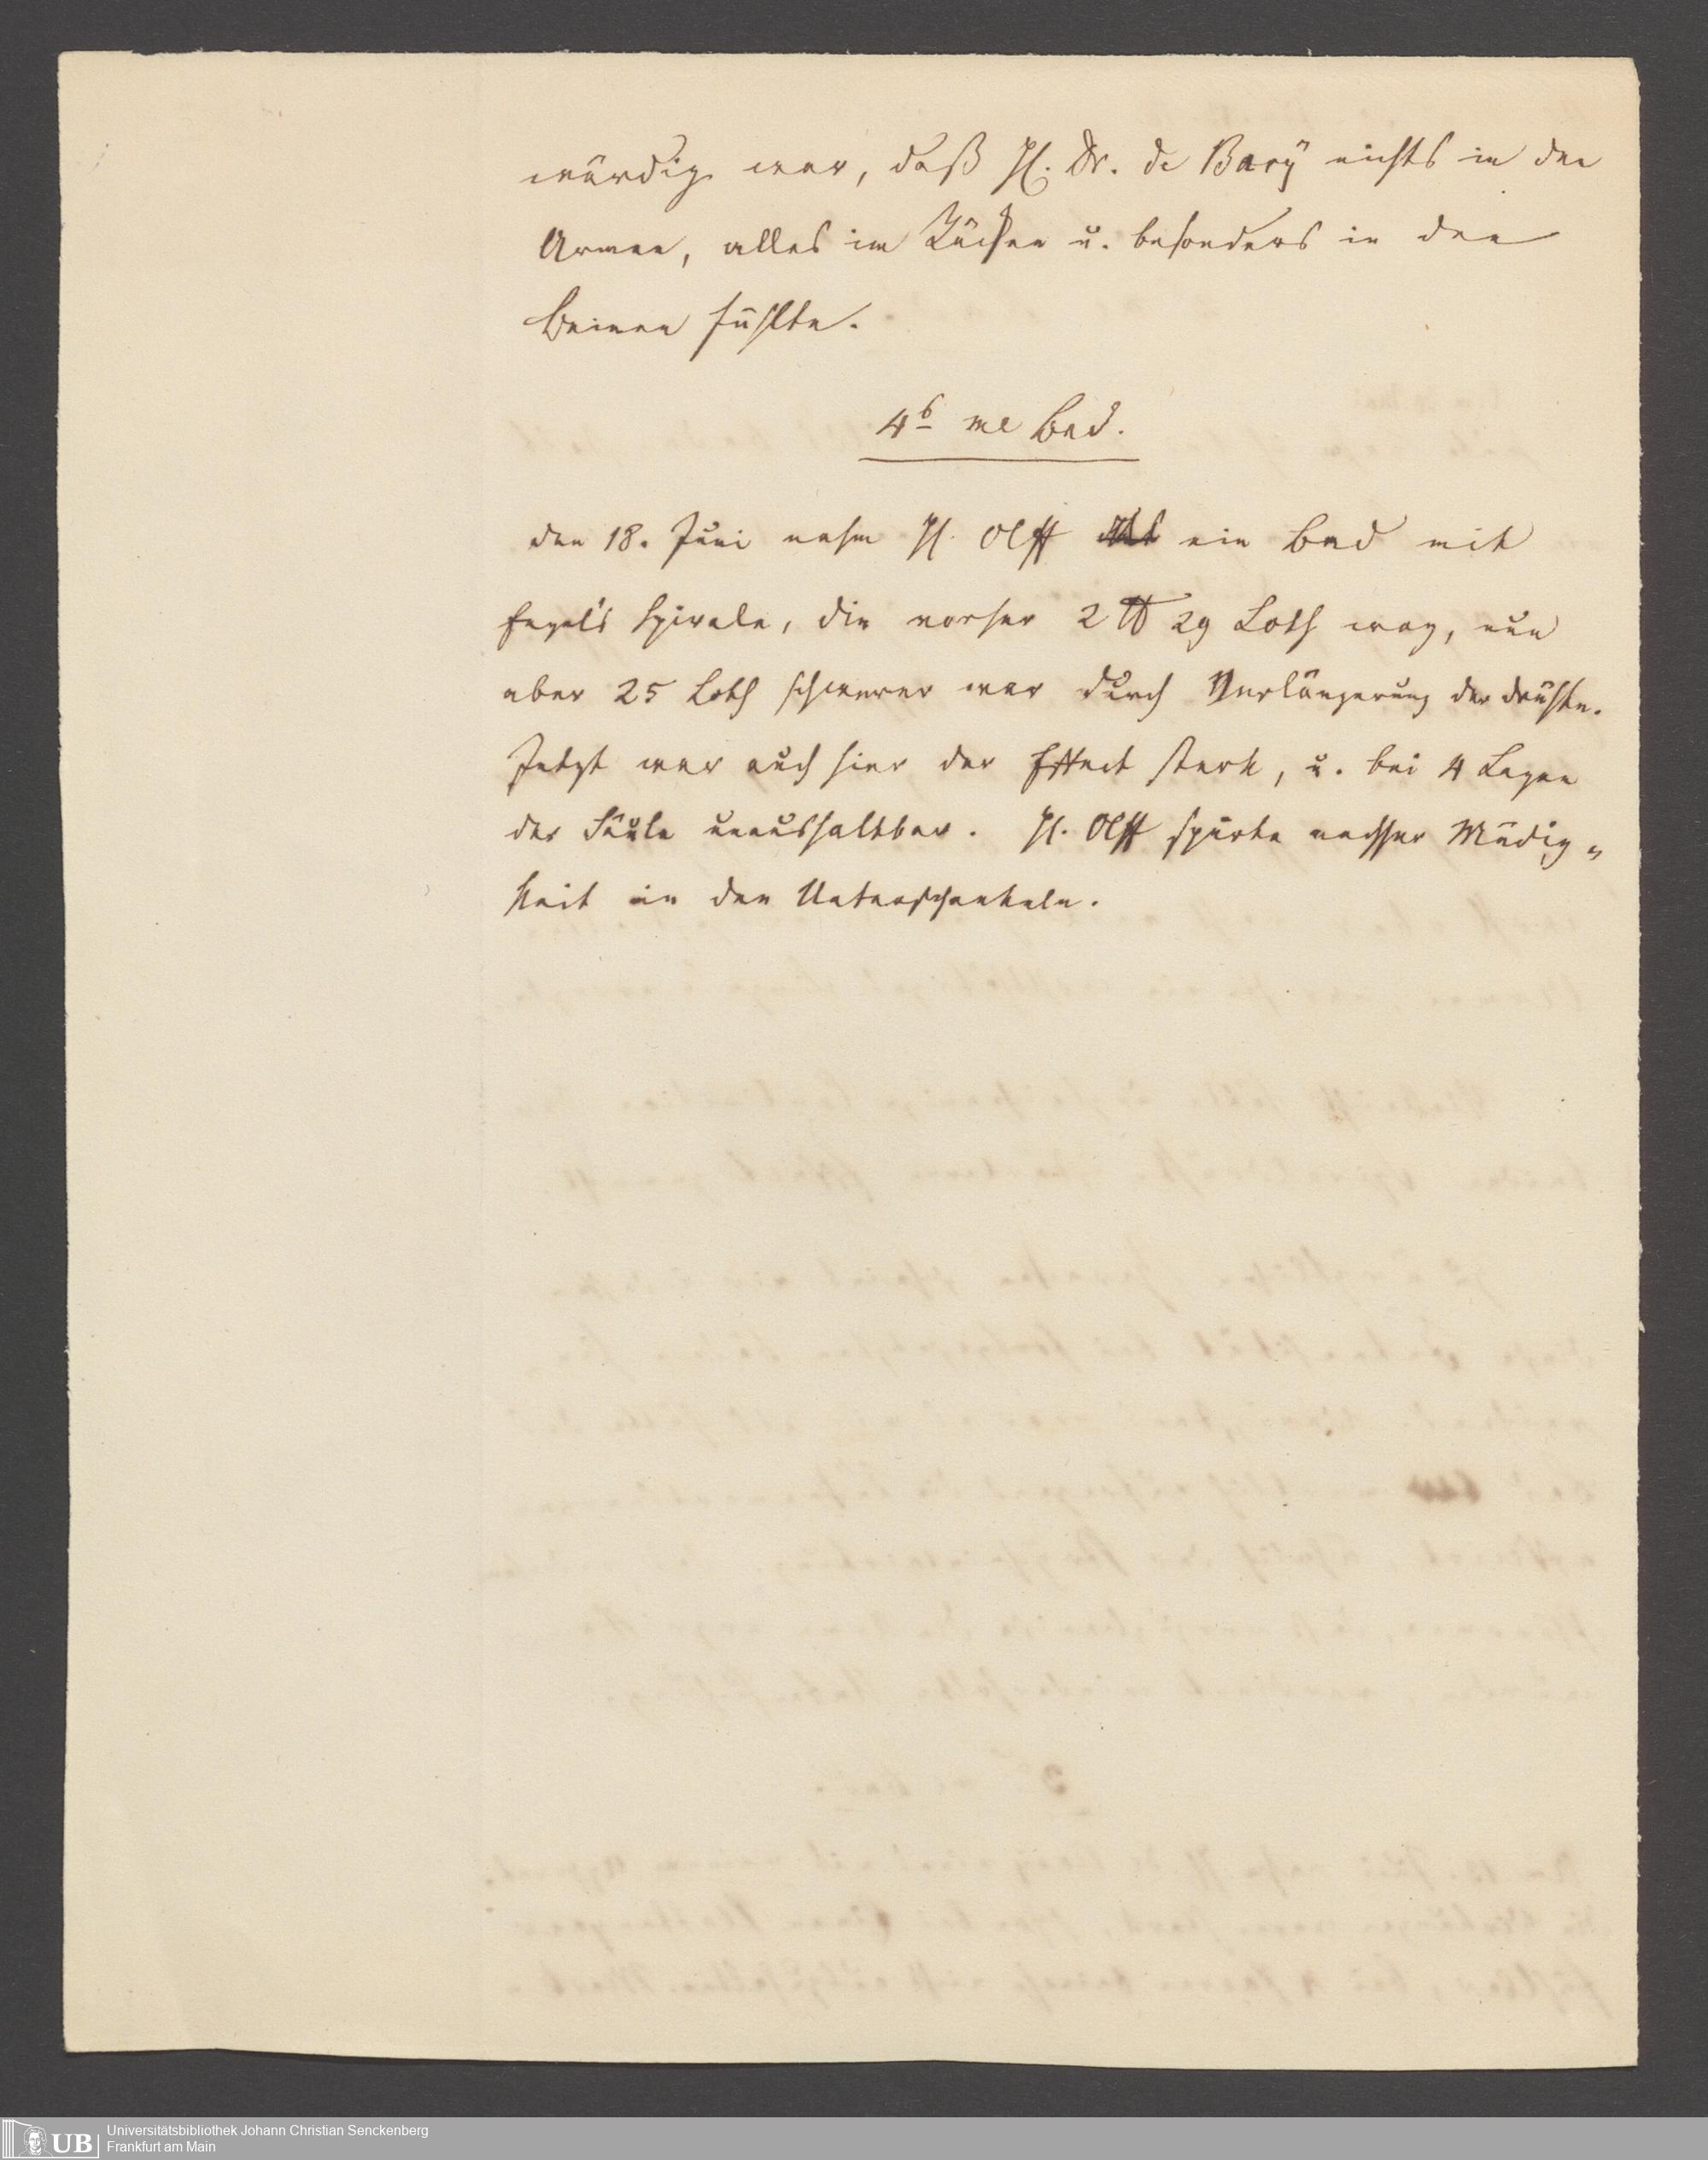 würdig war, daß H. Dr. de Bary nichts in den
Armen, alles im Rücken u. besonders in den
Beinen fühlte.
4s me Bad.
den 18. Juni nahm H. Olff ein Bad mit
Engel's Spirale, die vorher 2 ℔ 29 Loth wog, nun
aber 25 Loth schwerer war durch Verlängerung der Drähte.
Jetzt war auch hier der Effect stark, u. bei 4 Lagen
der Säule unaushaltbar. H. Olff spürte nachher Müdig„
keit in den Unterschenkeln.
Universitätsbibliothek Johann Christian Senckenberg
UB Frankfurt am Main